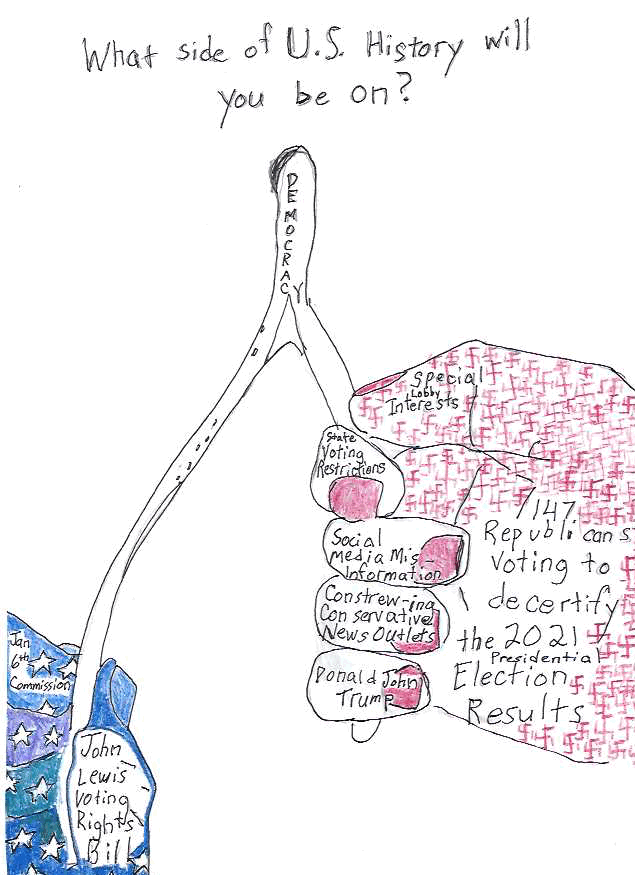 What side of U.S. History will
you be on?
DEMOCRACY
Special
Lobby
Interests
State
Voting
Restrictions
Social
Media Mis-
Information
Constrew-ing
Conservative
News Outlets
Donald John
Trump
147
Republicans
Voting to
decertify
the 2021
Presidential
Election
Results
Jan
6th
Commission
John
Lewis
Voting
Rights
Bill